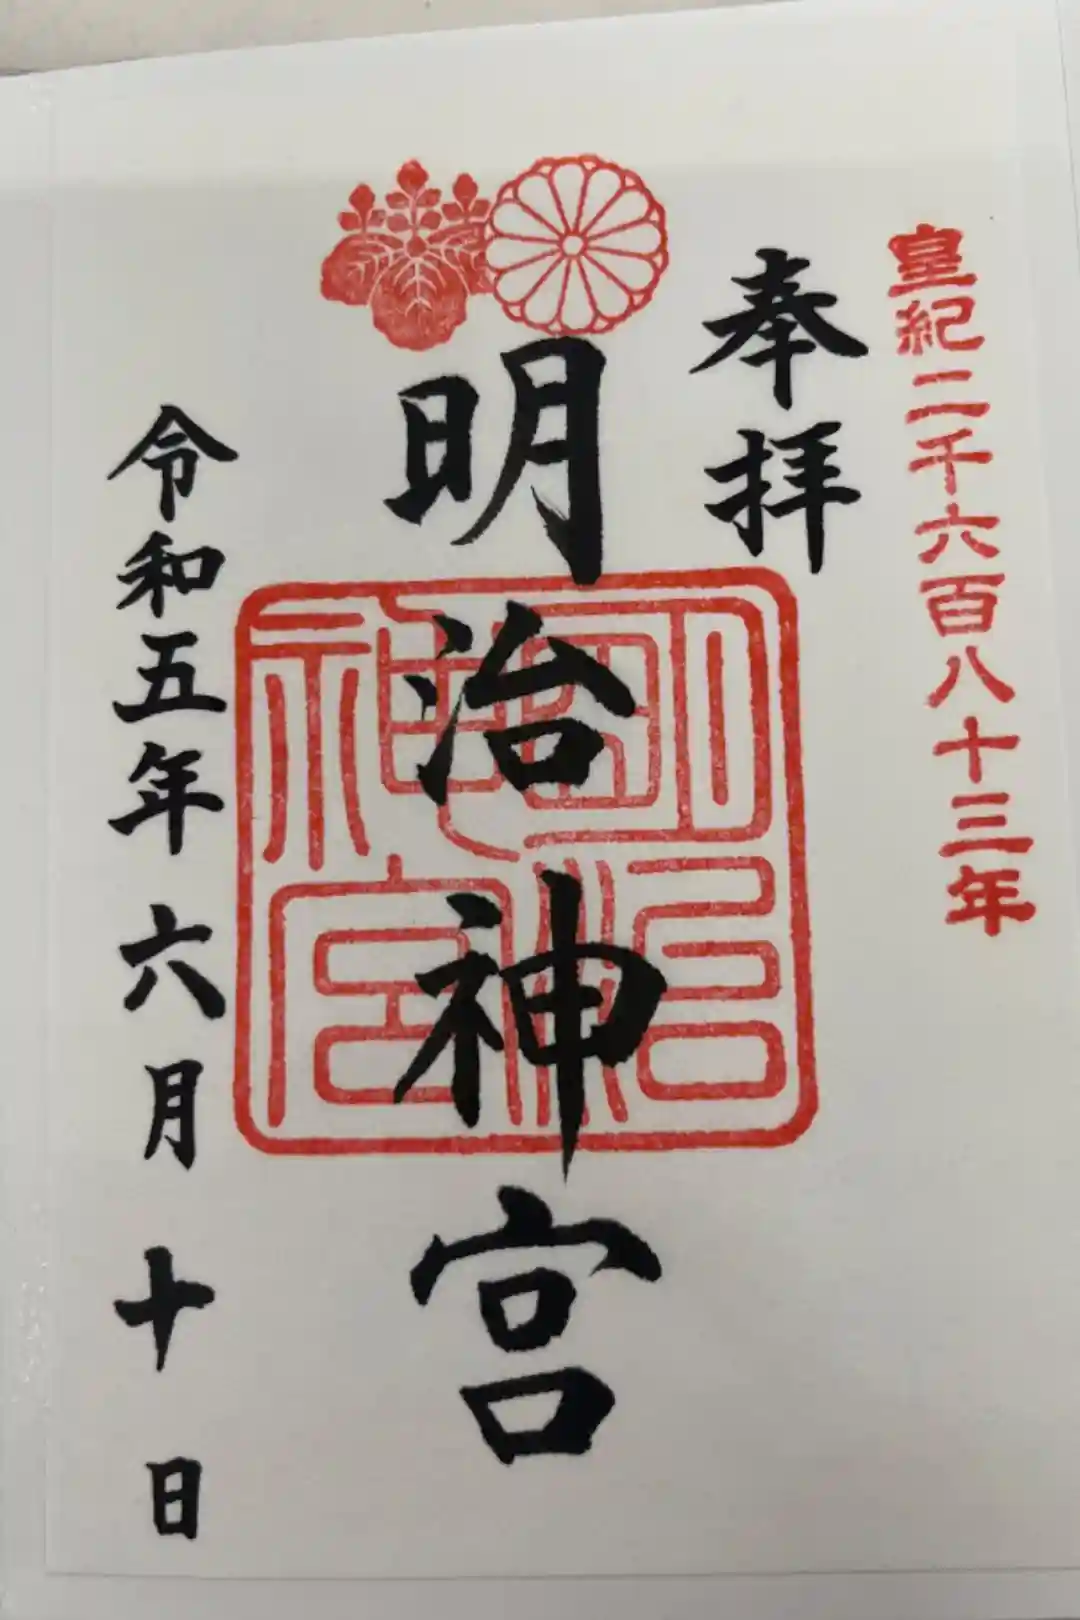 皇紀二千六百八十三年
奉拝
明治神宮
明治神宮
令和五年六月十日